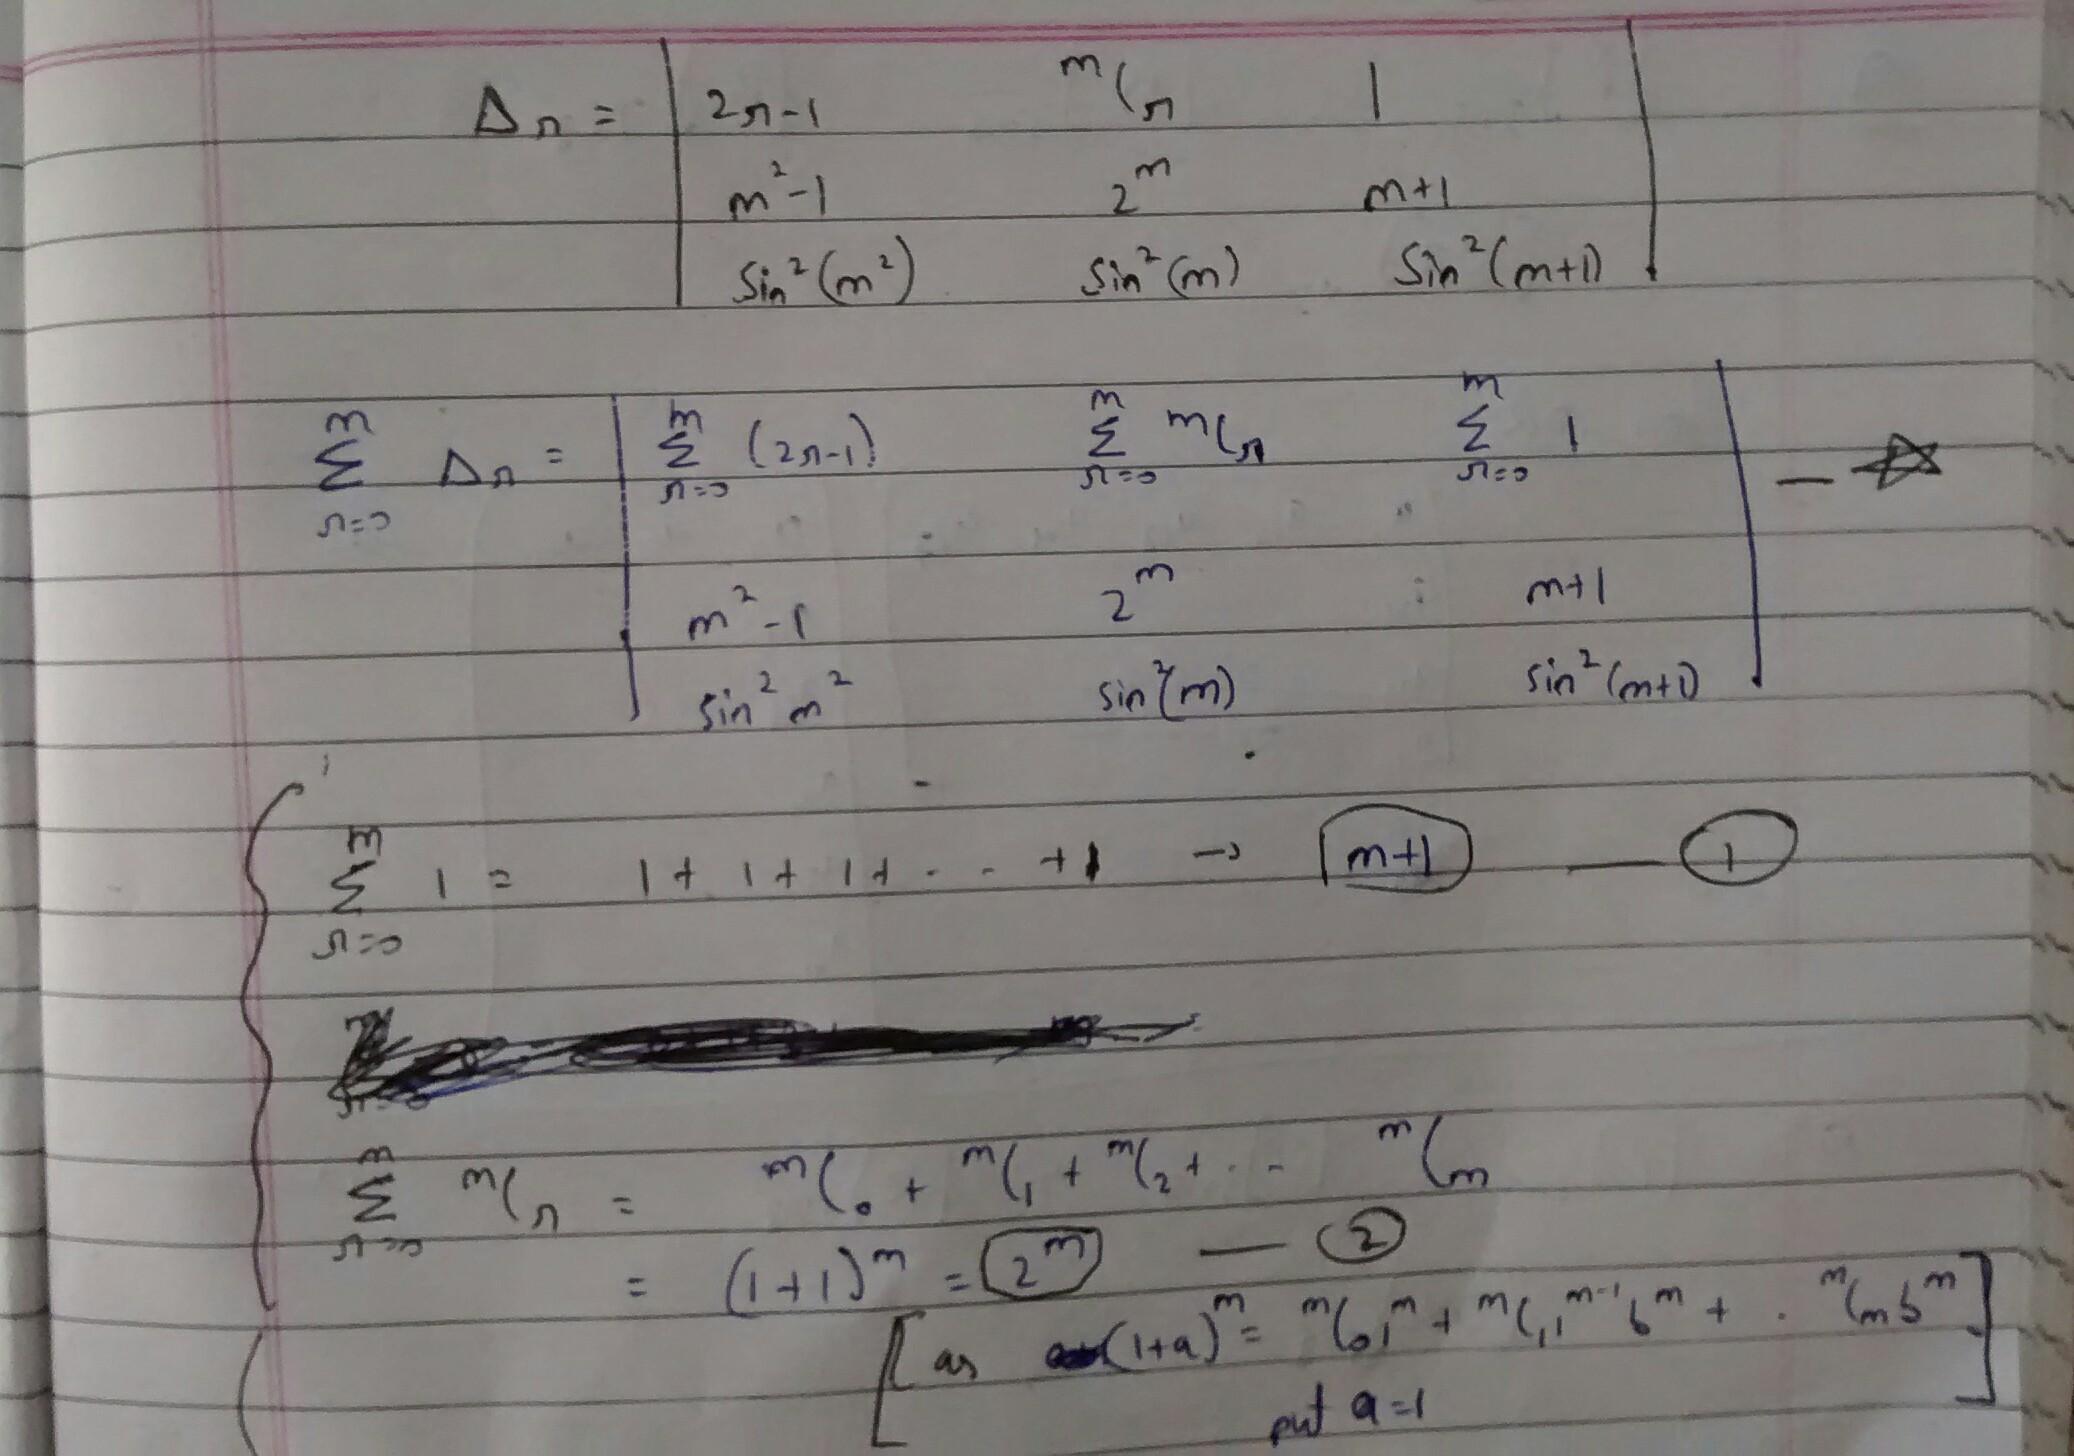 Δr = | 2r-1 mCr 1 |
| m²-1 2^m m+1 |
| Sin²(m²) Sin²(m) Sin²(m+1) |
m∑r=0 Δr = | m∑r=0 (2r-1) m∑r=0 mCr m∑r=0 1 | — ☆
| m²-1 2^m m+1 |
| sin²m² sin²(m) sin²(m+1) |
m∑r=0 1 = 1+1+1+...+1 → m+1 — 1
m∑r=0 mCr = mC0 + mC1 + mC2 + ... mCm
= (1+1)^m = 2^m — 2
[as (1+a)^m = mC0 1^m + mC1 1^m-1 b^m + . mCm b^m]
put a=1